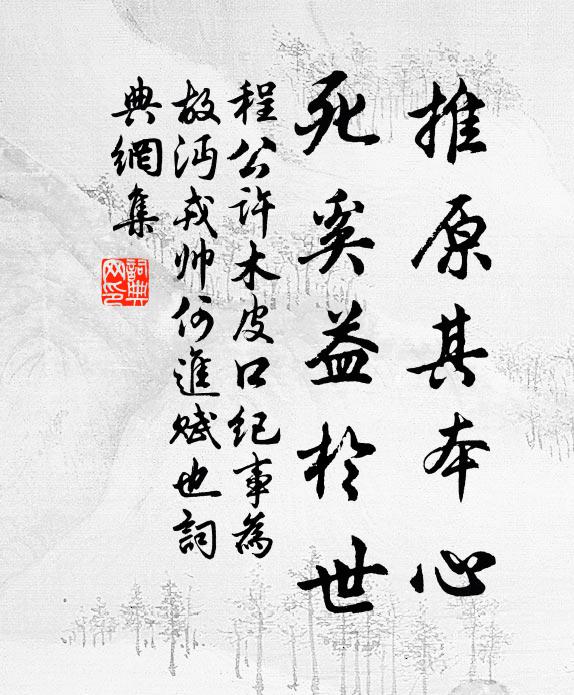 推原其本心
死奚益於世
程公许木皮口纪事為
故沔戎帅何進赋也詞
典網集
詞典網印